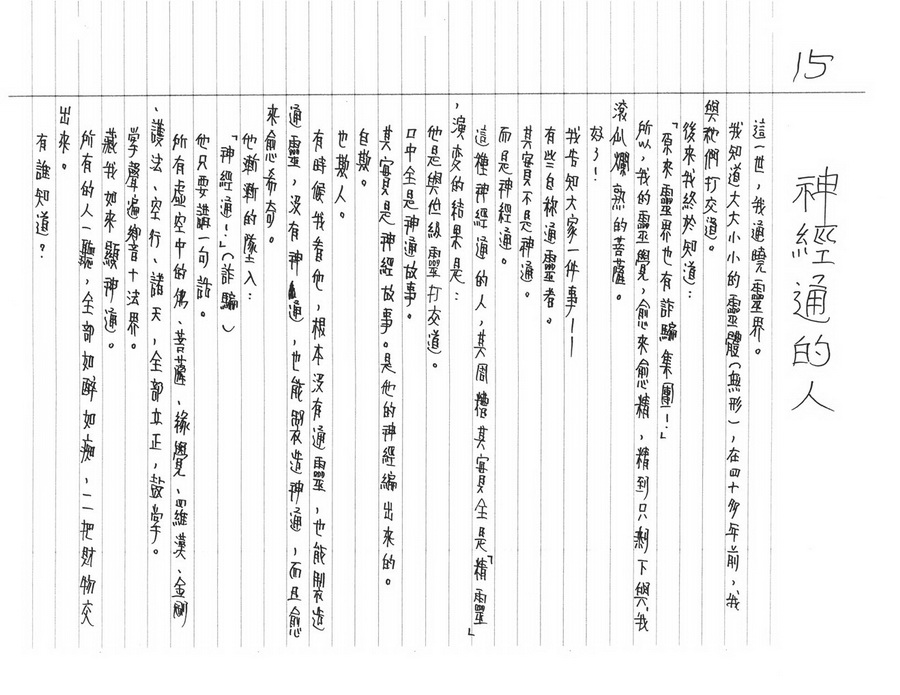 15
神經通的人
這一世，我通曉靈界。
我知道大大小小的靈體（無形），在四十多年前，我
與祂們打交道。
後來我終於知道：
「原來靈界也有詐騙集團！」
所以，我的靈覺，愈來愈精，精到只剩下與我
滾瓜爛熟的菩薩。
好了！
我告知大家一件事——
有些自称通靈者。
其實不是神通。
而是神經通。
這種神經通的人，其周遭其實全是「精靈」
，演变的結果是：
他是與低級靈打交道。
口中全是神通故事。
其實是神經故事。是他的神經編出來的。
自欺。
也欺人。
有時候我看他，根本沒有通靈，也能製造
通靈，沒有神通，也能製造神通，而且愈
來愈希奇。
他漸漸的墜入：
「神經通！」（詐騙）
他只要講一句話。
所有虛空中的佛、菩薩、緣覺、羅漢、金剛
、護法、空行、諸天，全部立正，鼓掌。
掌聲遍響十法界。
藏我如來顯神通。
所有的人一聽，全部如醉如痴，一一把財物交
出來。
有誰知道？